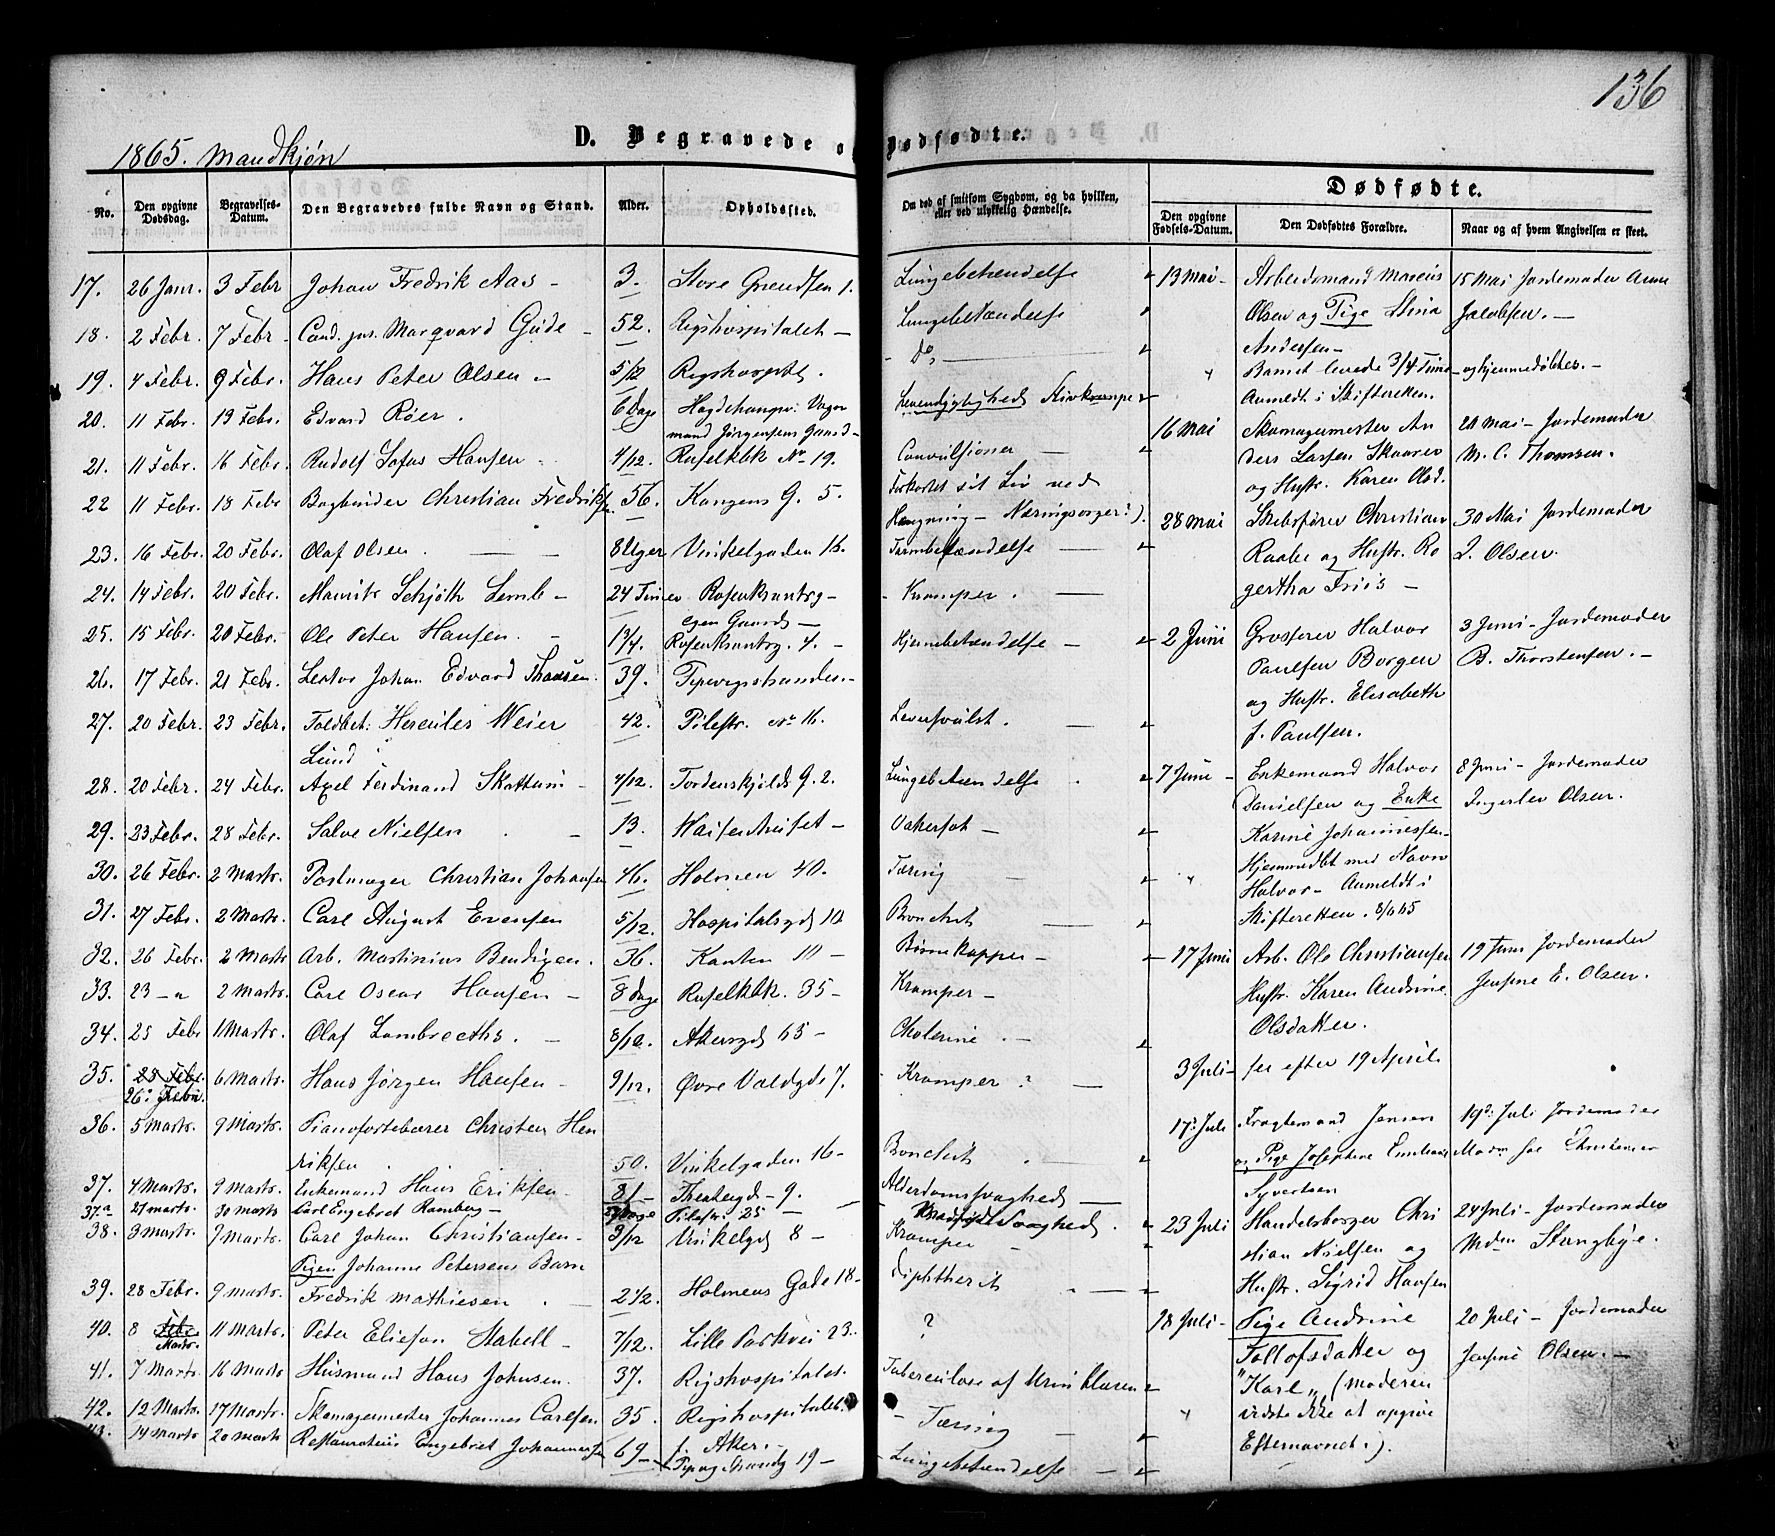 136
1865. Mandkjøn
D. Begravede o
Dødfødte.
No.
Den opgivne Dødsdag.
Begravelses-Datum.
Den Begravedes fulde Navn og Stand.
Alder.
Opholdssted.
Om død af smitsom Sygdom, og da hvilken, eller ved ulykkelig Hændelse.
Dødfødte.
Den opgivne Fødsels-Datum.
Den Dødfødtes Forældre.
Naar og af hvem Angivelsen er skeet.
17. 26 Janr. 3 Febr Johan Fredrik Aas - 3. Store Grendsen 1. Lungebetændelse
18. 2 Febr. 7 Febr - Cand. jur. Marqvard Gude - 52. Rigshospitalet - Lungebetændelse
19. 4 Febr. 9 Febr. Hans Peter Olsen - 5/12 Rigshospital. - Do,
20. 11 Febr. 19 Febr. Edvard Røer. 6 Dage Hagdehaugsv: Vogn
mand Jørgensens Gaard - Levendygtighed Stivkrampe
21. 11 Febr. 16 Febr. Rudolf Hansen 4/12. Ruselkbk No 19. Convulsioner -
22 11 Febr. 18 Febr Bogbinder Christian Fredriksen 56. Kongens G. 5. Forkortet sit Liv ved
Hængning - Næringsorger:).
23. 16 Febr. 20 Febr. Olaf Olsen. 8 Uger Vinkelgaden 16. Tarmbetændelse
24. 14 Febr. 20 Febr. Schjøth Lemb - 24 Timer Rosenkrantzg - Kramper.
egen Gaard -
25. 15 Febr. 20 Febr. Ole Peter Hansen. 1 3/4. Rosenkrantzg. 4. - Hjernebetændelse -
26. 17 Febr. 21 Febr. Lector Johan Edvard Thaasen. 39. Pipervigstranden. -
27. 20 Febr. 23 Febr. Toldbet: Hercules Weier 42. Pilestr. No 16. Leversvulst.
Lund
28. 20 Febr. 24 Febr. Axel Ferdinand Skattum - 4/12. Tordenskjolds G. 2. Lungebetændelse
29. 23 Febr. 28 Febr. Salve Nielsen - 13. Waisenhuset - Vatersot -
30. 26 Febr. 2 Marts. Christian Johansen 46. Holmen 40. Tæring
31. 27 Febr. 2 Marts. Carl August Evensen 5/12. Hospitalsgd 10 Bronchit
32. 26 Febr. 2 Marts Arb. Martinius Bendixen. 36. Kanten 10 - Børnekopper -
33. 23 - " 2 Marts. Carl Oscar Hansen - 8 Dage Ruselkbk. 35 - Kramper -
34. 25 Febr 1 Marts. Olaf Lambrechts. 8/12. Akersgd 65 - Cholerine. -
35. 25 Febr. 6 Marts. Hans Jørgen Hansen - 9/12. Øvre Voldgd. 7. - Kramper?
26. Febr.
36. 5 Marts. 9 Marts. Christen Hen
riksen 50. Vinkelgaden 16 - Bronchit
37. 4 Marts. 9 Marts. Enkemand Hans Eriksen. 81 - Theatergd - 9. Alderdomssvaghed
37.a 27 Marts. 30 Marts Carl Engebret Ramberg - Pilestr. 25 - Svaghed.
38. 3 Marts. 7 Marts. Carl Johan Christiansen - 3/12 Vinkelgd 8 - Kramper
Pigen Johanne Petersens Barn
39. 28 Febr. 9 Marts. Fredrik Mathiesen 2 1/2. Holmens Gade 18 - Diphtherit
40. 8 Febr. 11 Marts. Peter Eliesen Stabell - 7/12. Lille Parkvei 23. ?
Marts.
41. 7 Marts. 16 Marts Husmand Hans Johnsen. 37. Rigshospitalet. Tuberculose af Urinblæren
42. 12 Marts. 17 Marts. Skomagermester Johannes Carlsen 35. Rigshospitalet. - Tæring
43. 14 Marts 20 Marts Engebret Johannesen 69 - f. Aker. -
19 - - Lungebetændelse
13 Mai - Arbeidsmand Marcus 15 Mai Jordemoder Anne
Olsen og Pige Stina Jacobsen. -
Andersen -
" Barnet levede 3/4 Time - og hjemmedøbtes. -
Anmeldt i Skifteretten.
16 Mai Skomagermester An 20 Mai - Jordemoder
ders Larsen Skaarer M. C. Thomsen.
og Hustr. Karen Olsd.
28 Mai Skibsfører Christian 30 Mai Jordemoder
Raabe og Hustr. Ro J. Olsen.
gertha Friis -
2 Juni Grosserer Halvor 3 Juni - Jordemoder
Paulsen Borgen B. Thorstensen. -
og Hustr. Elisabeth
f. Paulsen.
7 Juni - Enkemand Halvor 8 Juni - Jordemoder
Danielsen og Enke Ingerlev Olsen.
Karine Johannessen -
" Hjemmedbt med Navn
Halvor - Anmeldt i
Skifteretten. 8/6 65
17 Juni Arb. Ole Christiansen 19 Juni Jordemoder
Hustr. Karen Andrine Josefine E. Olsen.
Olsdatter.
3 Juli - see efter 19 April.
17d Juli Fragtemand Jensen 19d Juli Jordemoder
og Pige Josephine
Syvertsen
23 Juli Handelsborger Chri 24 Juli - Jordemoder
stian Nielsen og Mden Stangbye.
Hustr. Sigrid Hansen
18 Juli - Pige Andrine 20 Juli - Jordemoder
Tollofsdatter og Josefine Olsen. -
"Karl" (Moderen
" vidste ikke at opgive
Efternavnet:).